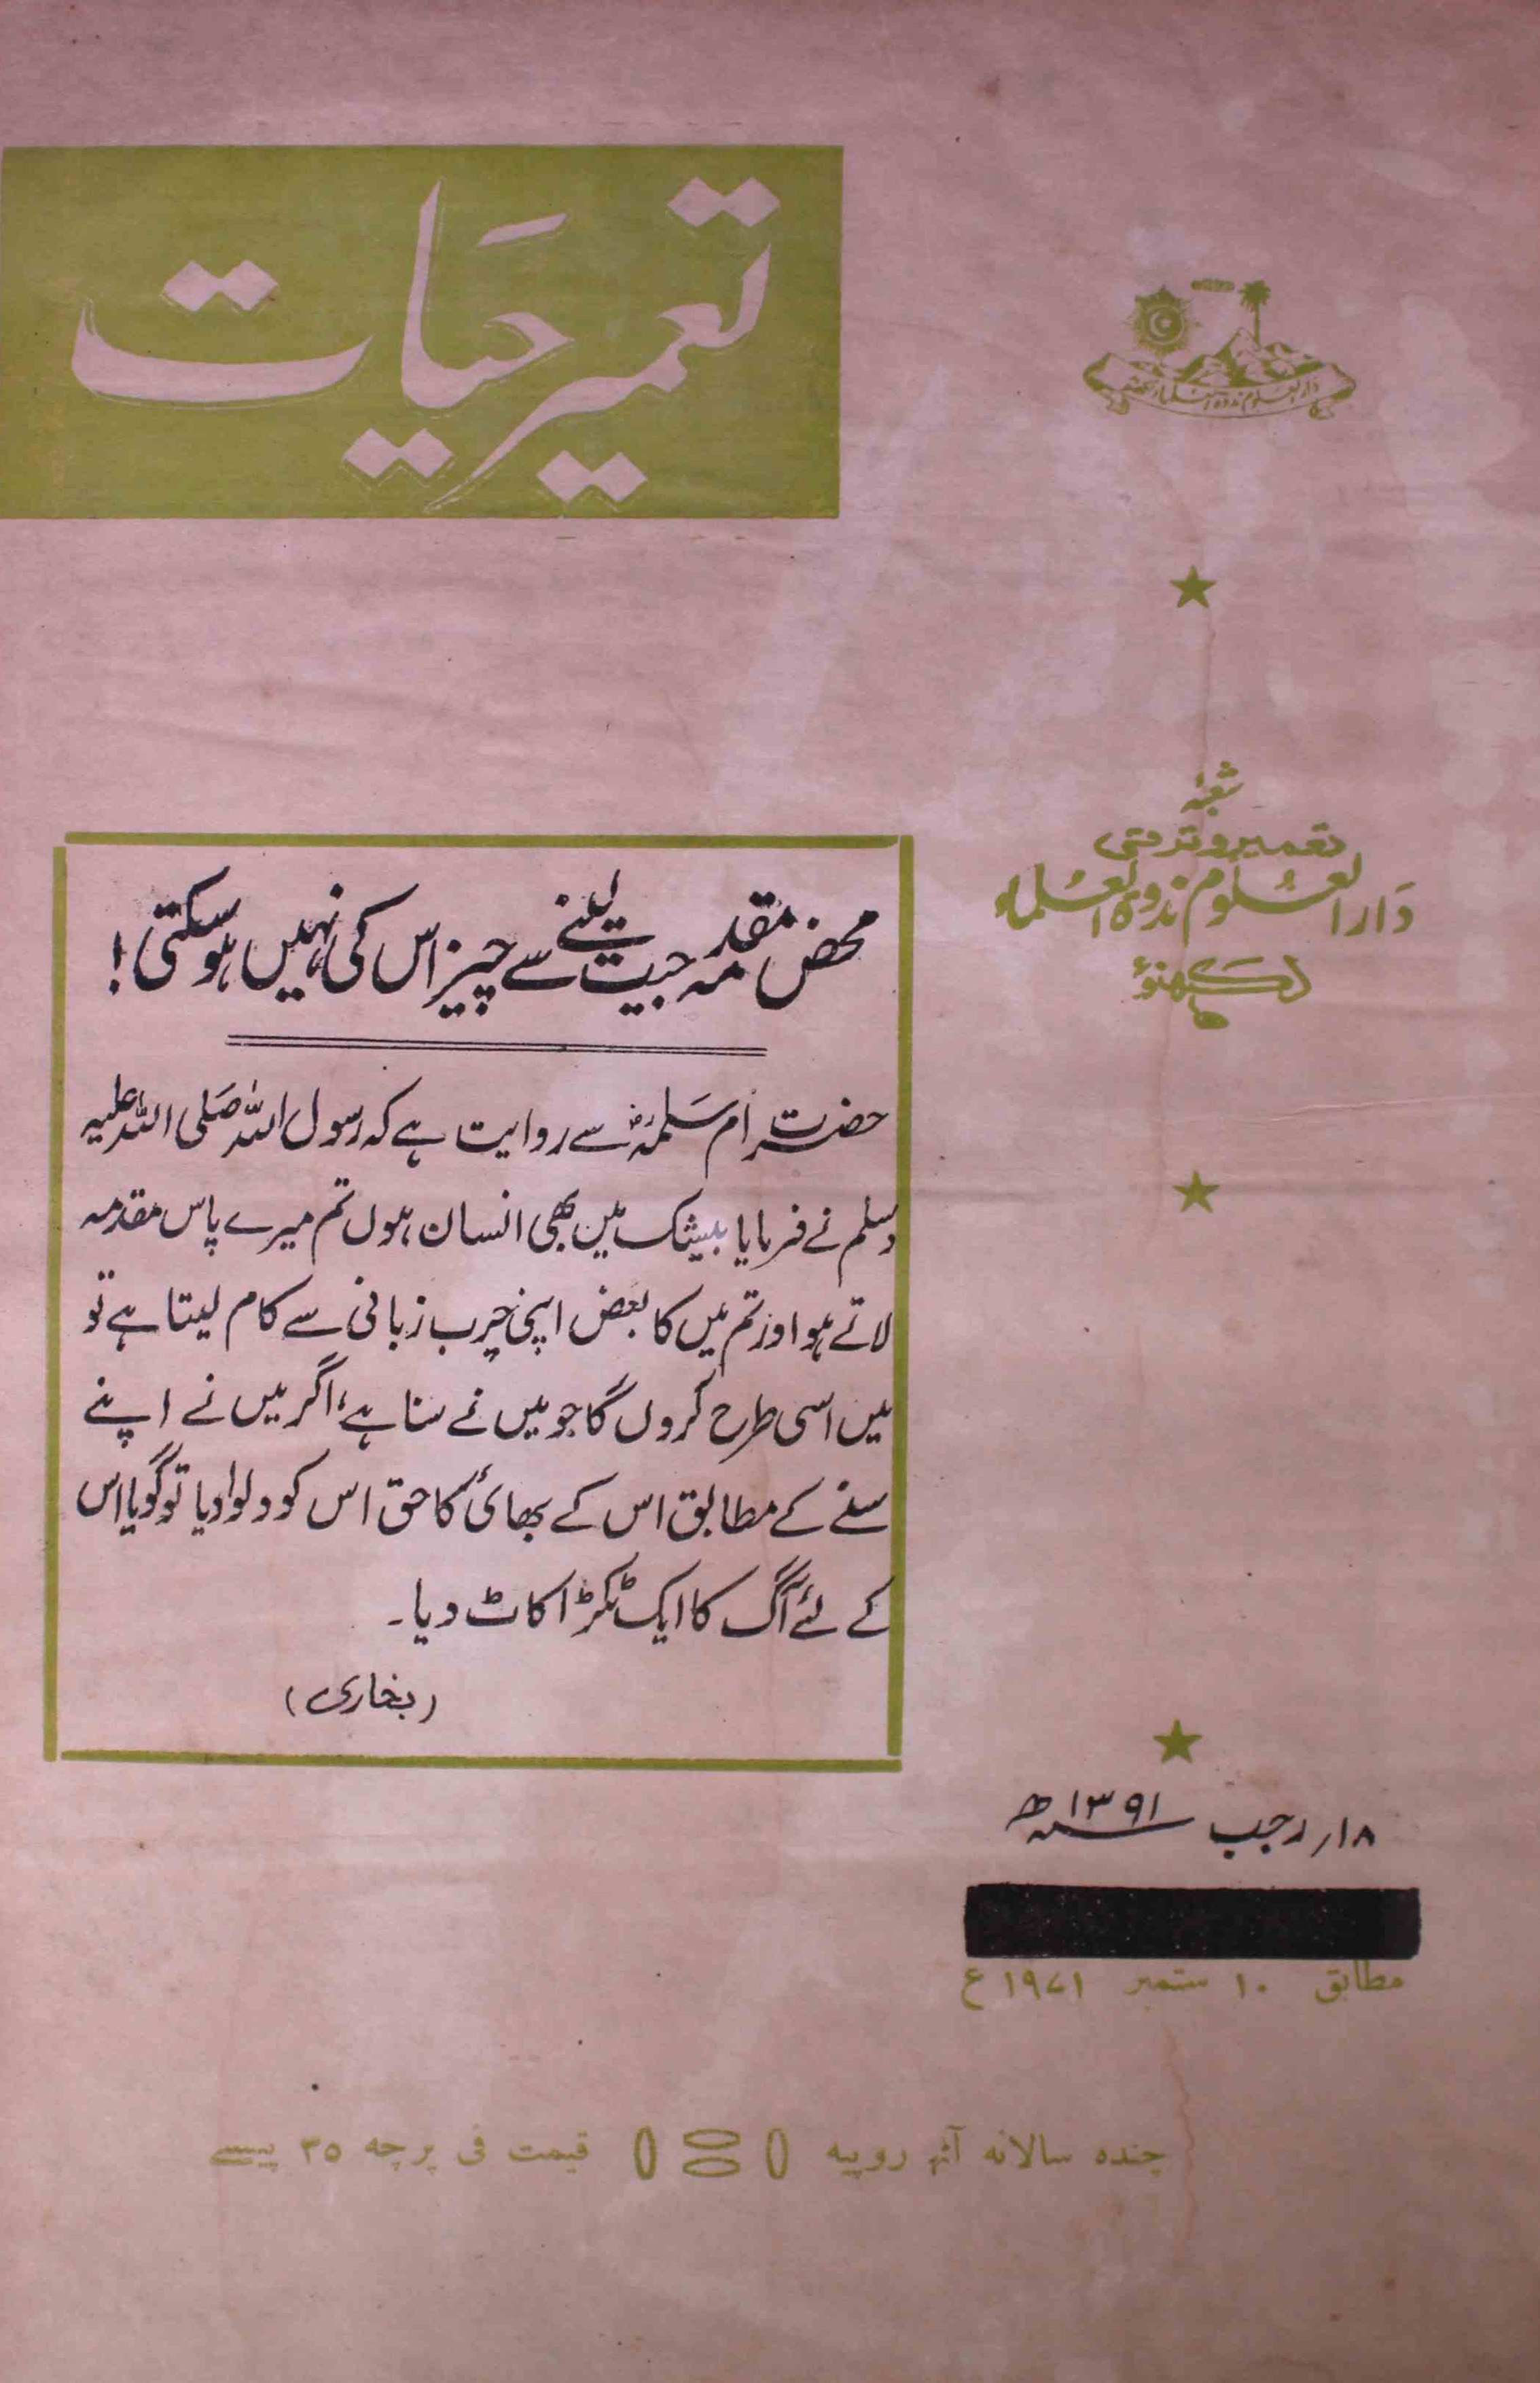 تعمیر حیات
دار العلوم ندوۃ العلماء لکھنؤ
شعبۂ
تعمیر و ترقی
دار العلوم ندوۃ العلماء
لکھنؤ
محض مقدمہ جیت لینے سے چیز اس کی نہیں ہو سکتی!
حضرت ام سلمہؓ سے روایت ہے کہ رسول اللہ صلی اللہ علیہ
وسلم نے فرمایا بیشک میں بھی انسان ہوں تم میرے پاس مقدمہ
لاتے ہو اور تم میں کا بعض اپنی چرب زبانی سے کام لیتا ہے تو
میں اسی طرح کروں گا جو میں نے سنا ہے، اگر میں نے اپنے
سنے کے مطابق اس کے بھائی کا حق اس کو دلوا دیا تو گویا اس
کے لئے آگ کا ایک ٹکڑا کاٹ دیا۔
(بخاری)
۱۸؍ رجب ۱۳۹۱ھ
مطابق ۱۰ ستمبر ۱۹۷۱ع
چندہ سالانہ آٹھ روپیہ قیمت فی پرچہ ۳۵ پیسے